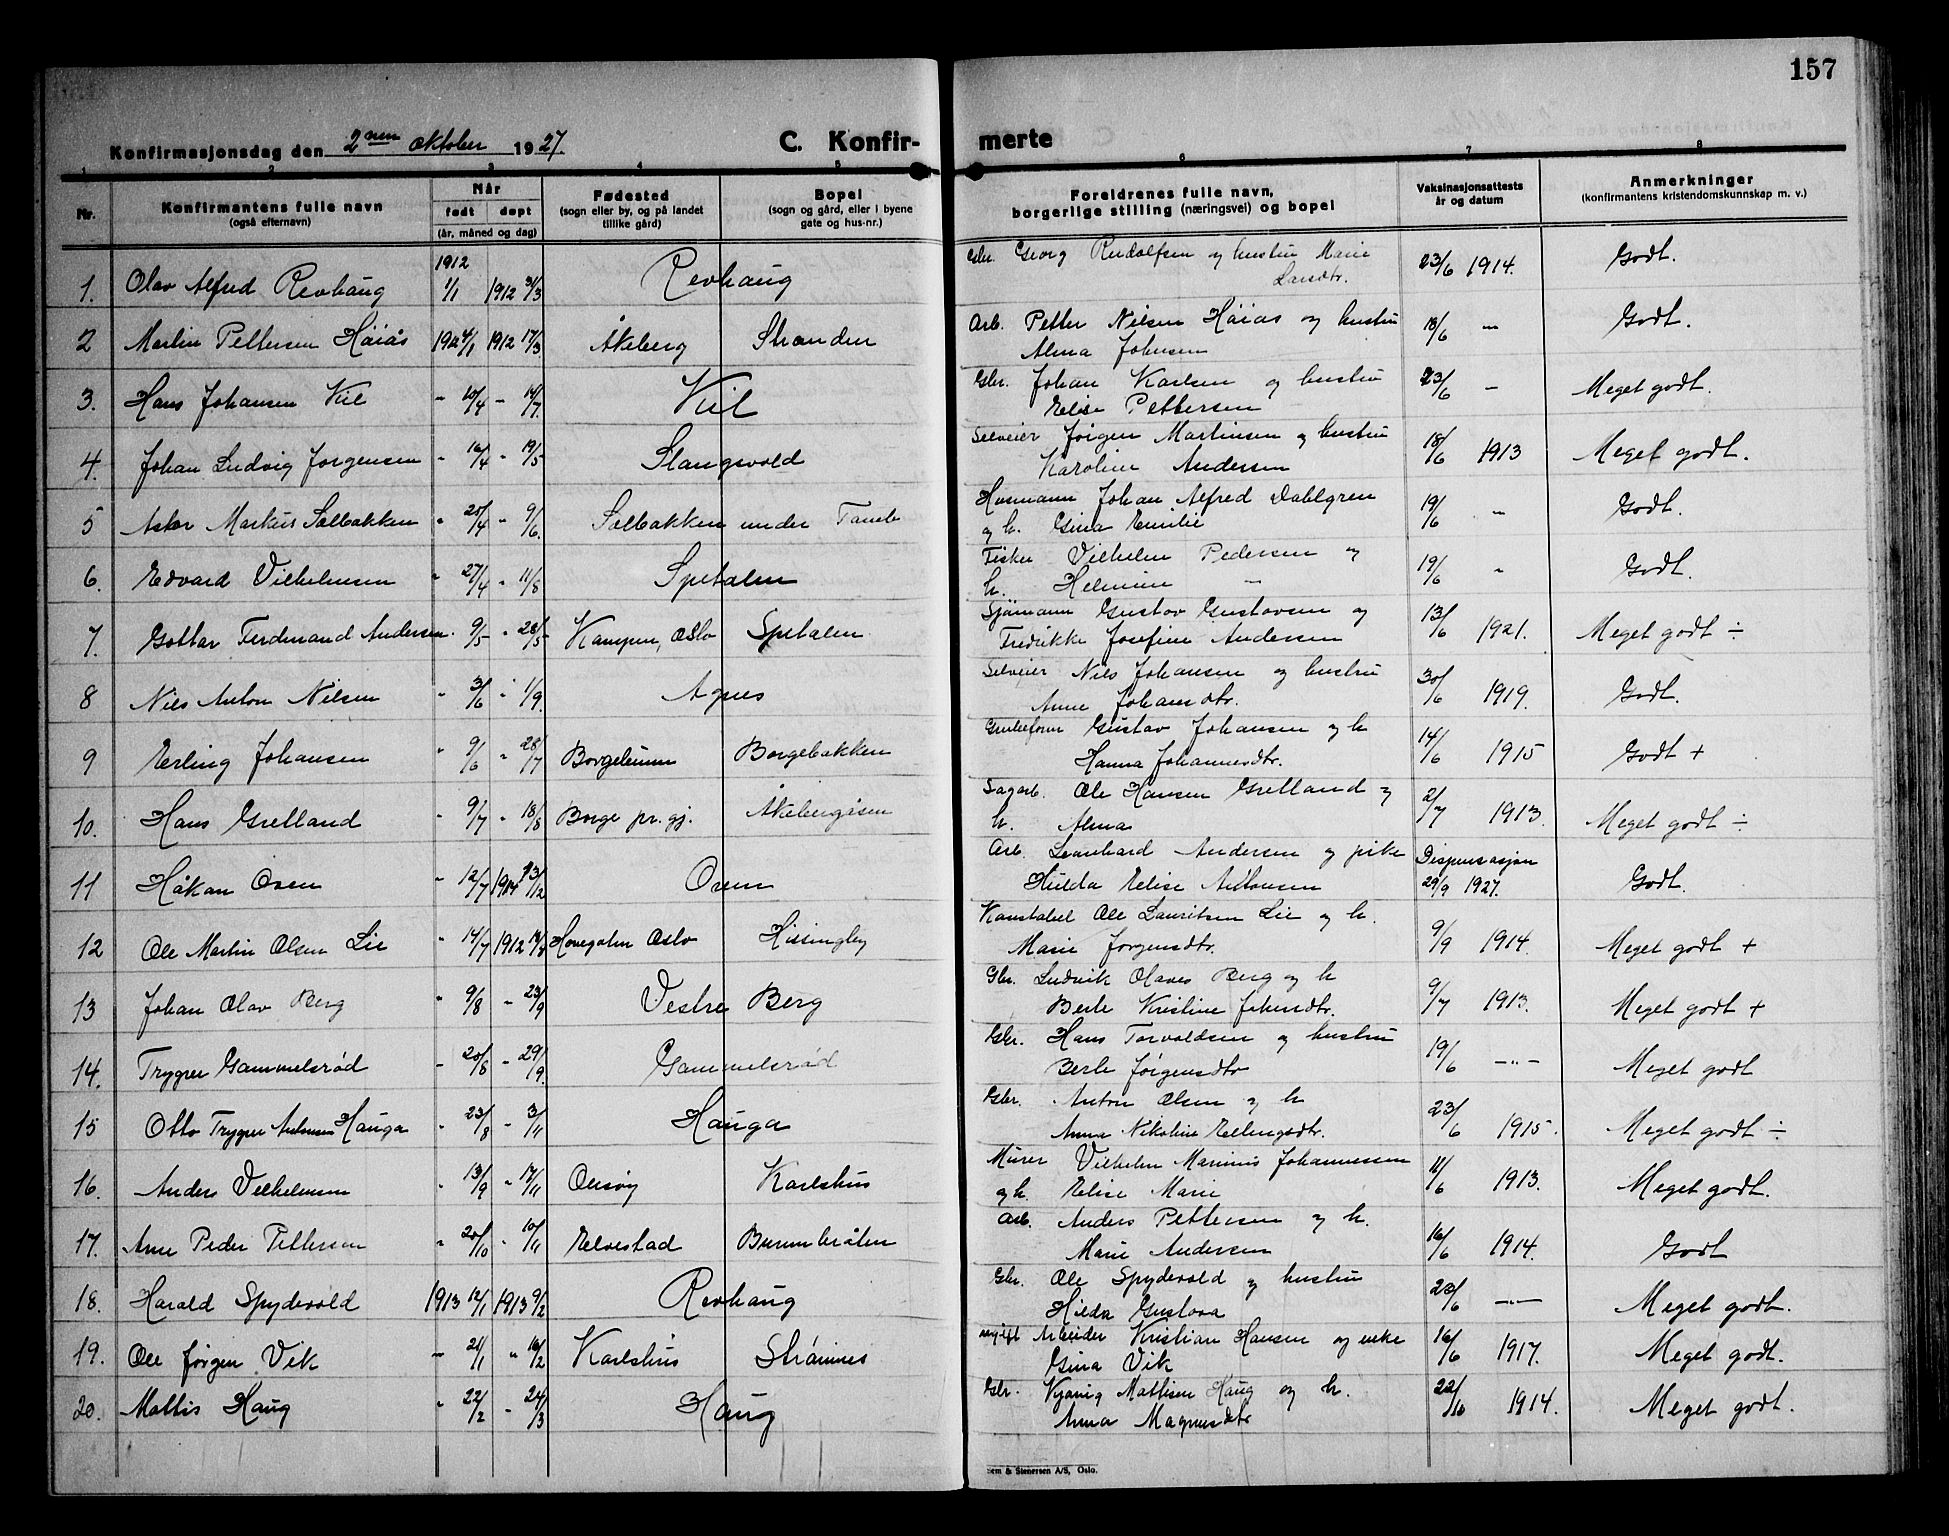 157
Konfirmasjonsdag den 2nen oktober 1927. C. Konfir- merte
1 2 3 4 5 6 7 8
Nr. Konfirmantens fulle navn (også efternavn) Når født døpt (år, måned og dag) Fødested (sogn eller by, og på landet tillike gård) Bopel (sogn og gård, eller i byene gate og hus-nr.) Foreldrenes fulle navn, borgerlige stilling (næringsvei) og bopel Vaksinasjonsattests år og datum Anmerkninger (konfirmantens kristendomskunnskap m. v.)
1. Olav Alfred Revhaug 1912 1/1 1912 31/3 Revhaug Gbr. Georg Rudolfsen og hustru Marie Larsdtr. 23/6 1914. Godt.
2 Martin Pettersen Håiås 1912 4/1 1912 17/3 Åkeberg Stranden Arb. Petter Nilsen Håiås og hustru Alma Johnsen 18/6 — Godt.
3. Hans Johansen Kil - 10/4 - 14/7 Kil Gbr. Johan Karlsen og hustru Elise Pettersen 23/6 - Meget godt.
4. Johan Ludvig Jørgensen - 16/4 - 19/5 Slangsvold Selveier Jørgen Martinsen og hustru Karoline Andersen 18/6 1913 Meget godt.
5 Astor Markus Solbakken " 20/4 - 9/6. Solbakken under Tomb Husmann Johan Alfred Dahlgren og h. Gina Emilie 19/6 " Godt.
6. Edvard Vilhelmsen " 27/4 - 11/8 Spetalen Fisker Vilhelm Pedersen og h. Helmine — 19/6 " Godt.
7. Gottar Ferdinand Andersen. " 9/5 - 28/5 Kampen, Oslo Spetalen Sjømann Gustav Gustavsen og Fredrikke Josefine Andersen 13/6 1921. Meget godt ÷
8 Nils Anton Nilsen " 3/6 " 1/9. Agnes Selveier Nils Johansen og hustru Anne Johansdtr. 30/6 1919. Godt.
9 Erling Johansen " 9/6 " 28/7 Borgebakken Gustav Johansen og h Hanna Johannesdtr. 14/6 1915 Godt +
10. Hans Grelland " 9/7 - 18/8 Borge pr. gj. Åkebergåsen Sagarb. Ole Hansen Grelland og h. Alma 2/7 1913. Meget godt ÷
11 Håkan Osen " 12/7 1914 13/12 Osen Arb. Leonhard Andersen og pike Hulda Elise Antonsen Dispensasjon 29/9 1927. Godt.
12 Ole Martin Olsen Lie " 14/7 1912 Oslo Hissingby Konstabel Ole Lauritsen Lie og h. Marie Jørgensdtr. 9/9 1914. Meget godt +
13 Johan Olav Berg " 9/8 - 23/9 Vestre Berg Gbr. Ludvik Olaves Berg og h Berte Kristine Johnsdtr. 9/7 1913. Meget godt +
14. Trygve Gammelsrød - 20/8 - 29/9. Gammelsrød Gbr. Hans Torvaldsen og hustru Berte Jørgensdtr 19/6 —"— Meget godt
15 Otto Trygve Antonsen Hauga " 23/8 - 3/11 Hauga Gbr. Anton Olsen og h Anna Nikoline Ellingsdtr. 23/6 1915. Meget godt ÷
16. Anders Vilhelmsen " 13/9 " 17/11 Karlshus Murer Vilhelm Marinus Johannessen og h. Elise Marie 11/6 1913. Meget godt.
17. Arne Peder Pettersen " 20/10 " 10/11 Elvestad Burumbråten Arb. Anders Pettersen og h. Marie Andersen 16/6 1914. Godt
18. Harald Spydevold 1913 12/1 1913 9/2 Revhaug Gbr. Ole Spydevold og hustru Hilda Gustava 23/6 —"— Meget godt.
19. Ole Jørgen Vik — 21/1 " 16/2 Karlshus Strømnes ugift Arbeider Kristian Hansen og enke Gina Vik 16/6 1917. Meget godt.
20. Mattis Haug " 22/2 - 24/3 Haug Gbr. Mattisen Haug og h. Anna Magnusdtr 22/10 1914. Meget godt.
Sem & Stenersen A/S, Oslo.